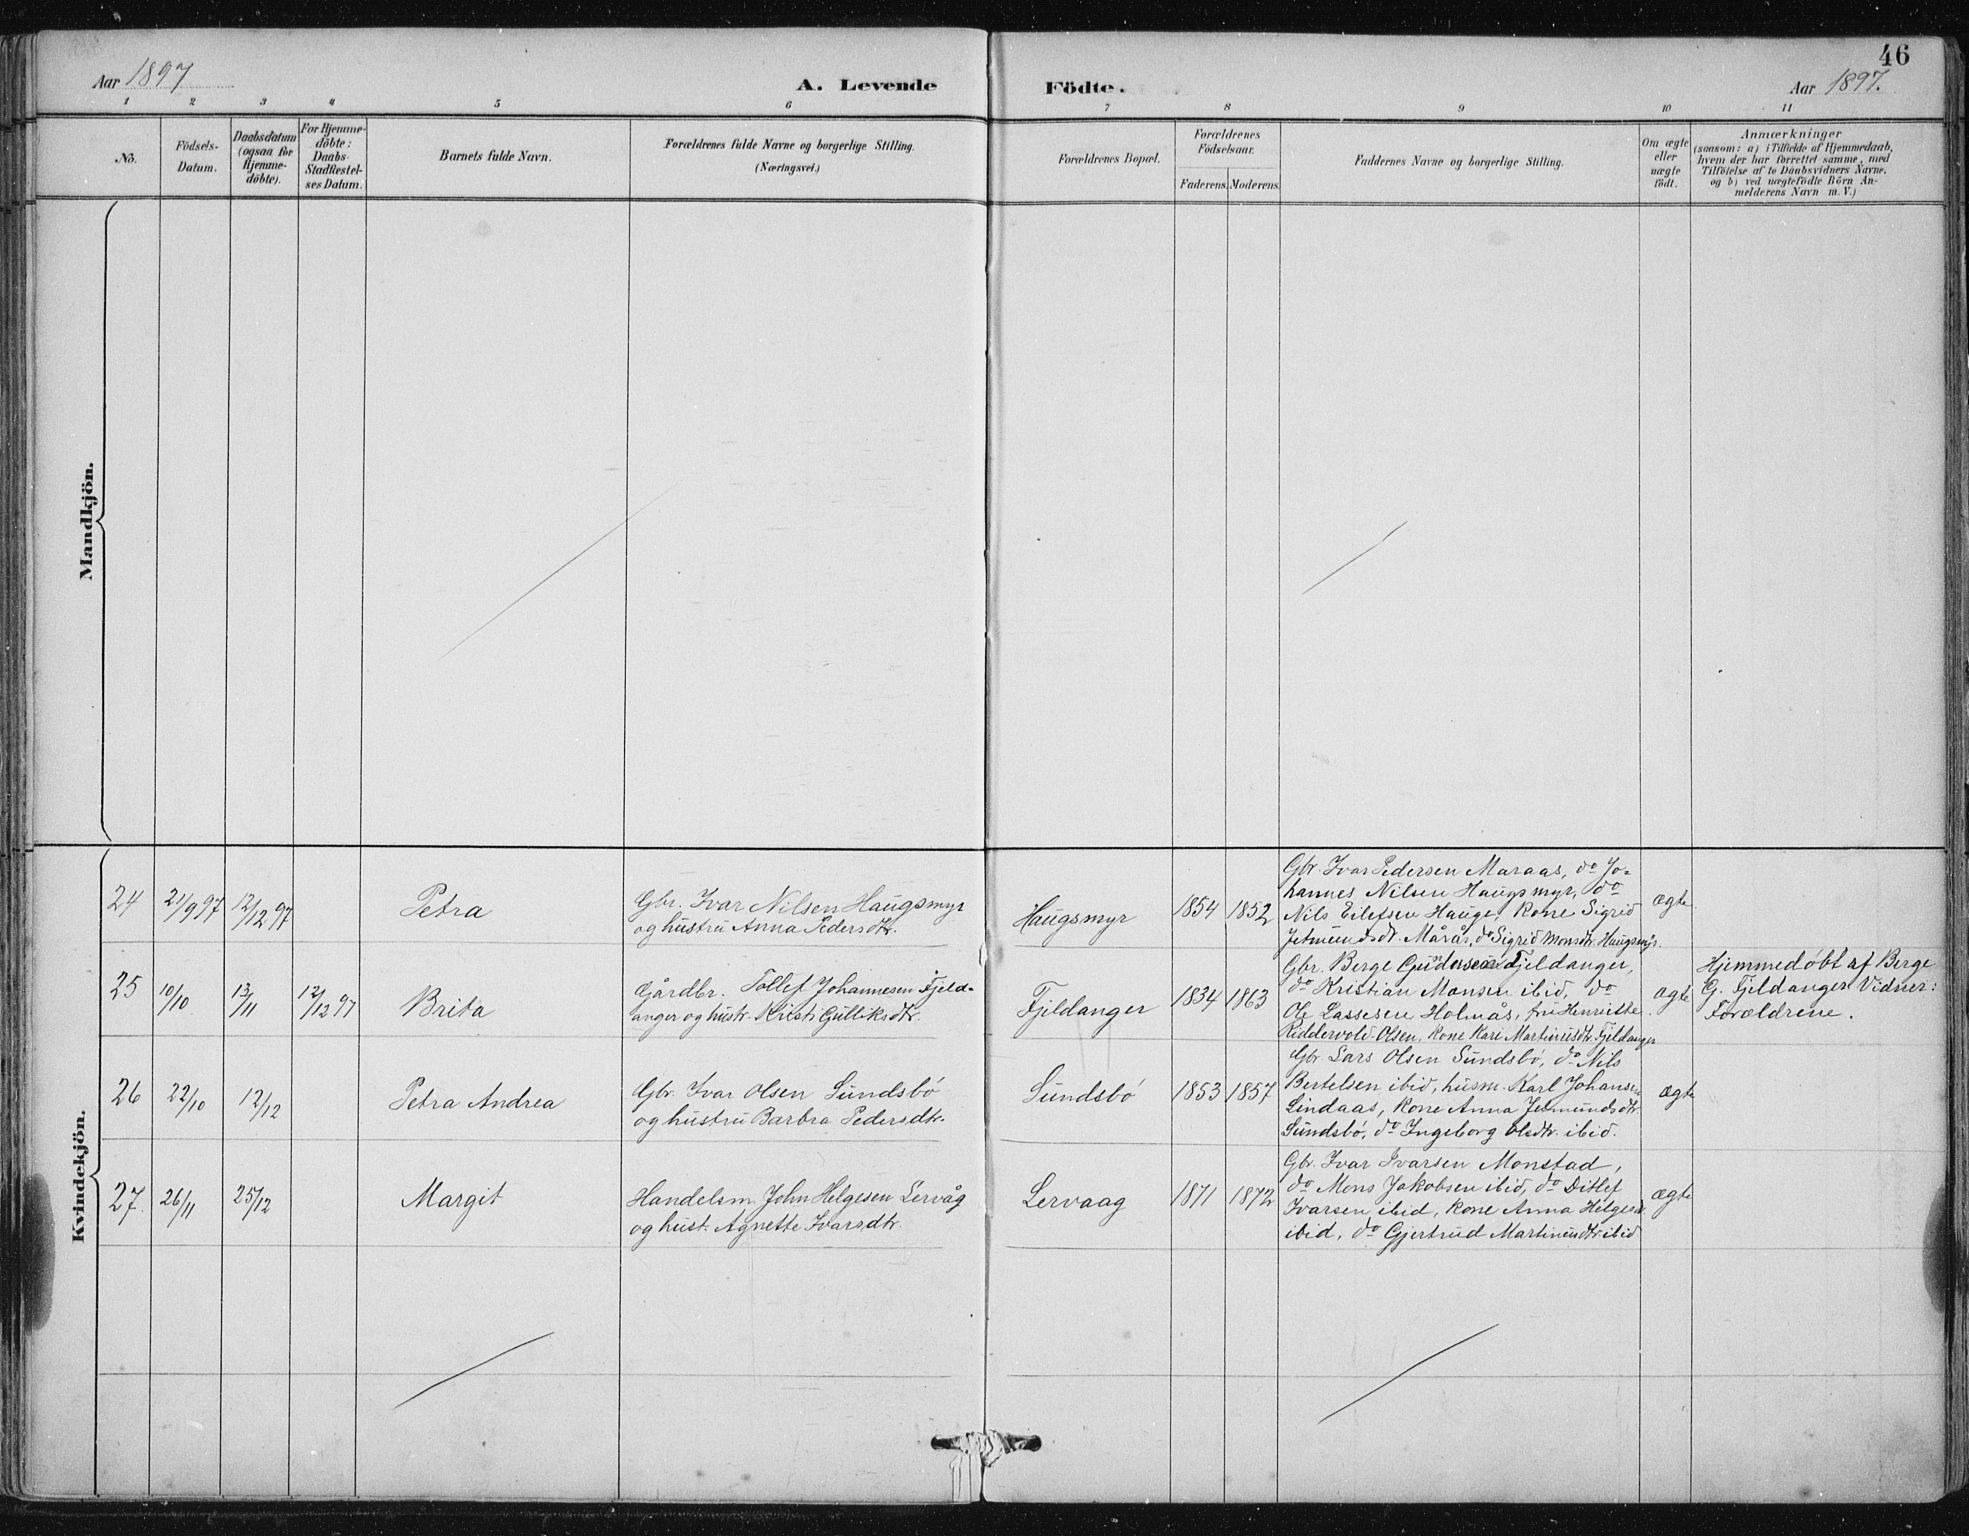 46
Aar 1897
A. Levende
Födte.
Aar 1897.
1 2 3 4 5 6 7 8 9 10 11
No.
Födsels-
Datum.
Daabsdatum
(ogsaa for
Hjemme-
döbte).
For Hjemme-
döbte:
Daabs-
Stadfæstel-
ses Datum.
Barnets fulde Navn.
Forældrenes fulde Navne og borgerlige Stilling.
(Næringsvei.)
Forældrenes Bopæl.
Forældrenes
Födselsaar.
Faderens.
Moderens.
Faddernes Navne og borgerlige Stilling.
Om ægte
eller
uægte
födt.
Anmærkninger
(saasom: a) i Tilfælde af Hjemmedaab,
hvem der har forrettet samme, med
Tilföielse af to Daabsvidners Navne,
og b) ved uægtefödte Börn An-
melderens Navn m. V.)
Mandkjön.
Kvindekjön.
24
21/9 97
12/12 97
Petra
Gbr. Ivar Nilsen Haugsmyr
og hustru Anna Pedersdtr.
Haugsmyr
1854
1852
Gbr. Ivar Pedersen Maraas, do Jo-
hannes Nilsen Haugsmyr, do
Nils Eilefsen Hauge, kone Sigrid
Jetmundsdt. Marås, do Sigrid Monsdtr. Haugsmyr.
ægte
25
10/10
13/11
12/12 97
Brita
Gårdbr. Tollef Johannesen Fjeld-
anger og hustr. Kristi Gulliksdtr.
Fjeldanger
1834
1863
Gbr. Berge Gundersen Fjeldanger,
do Kristian Monsen ibid, do
Ole Lassesen Holmås, fru Henriette
Riddervold-Olsen, kone Kari Martinusdtr. Fjeldanger
ægte
Hjemmedøbt af Berge
G. Fjeldanger. Vidner:
Forældrene.
26
22/10
12/12
Petra Andrea
Gbr. Ivar Olsen Sundsbö
og hustru Barbra Pedersdtr.
Sundsbö
1853
1857
Gbr. Lars Olsen Sundsbö, do Nils
Bertelsen ibid, husm. Karl Johansen
Lindaas, kone Anna Jetmundsdtr.
Sundsbö, do Ingeborg Olsdtr. ibid.
ægte
27.
26/11
25/12
Margit
Handelsm. John Helgesen Lervåg
og hust. Agnette Ivarsdtr.
Lervaag
1871
1872
Gbr. Ivar Ivarsen Monstad,
do Mons Jakobsen ibid, do Ditlef
Ivarsen ibid, kone Anna Helgesd.
ibid, do Gjertrud Martinusdtr. ibid
ægte